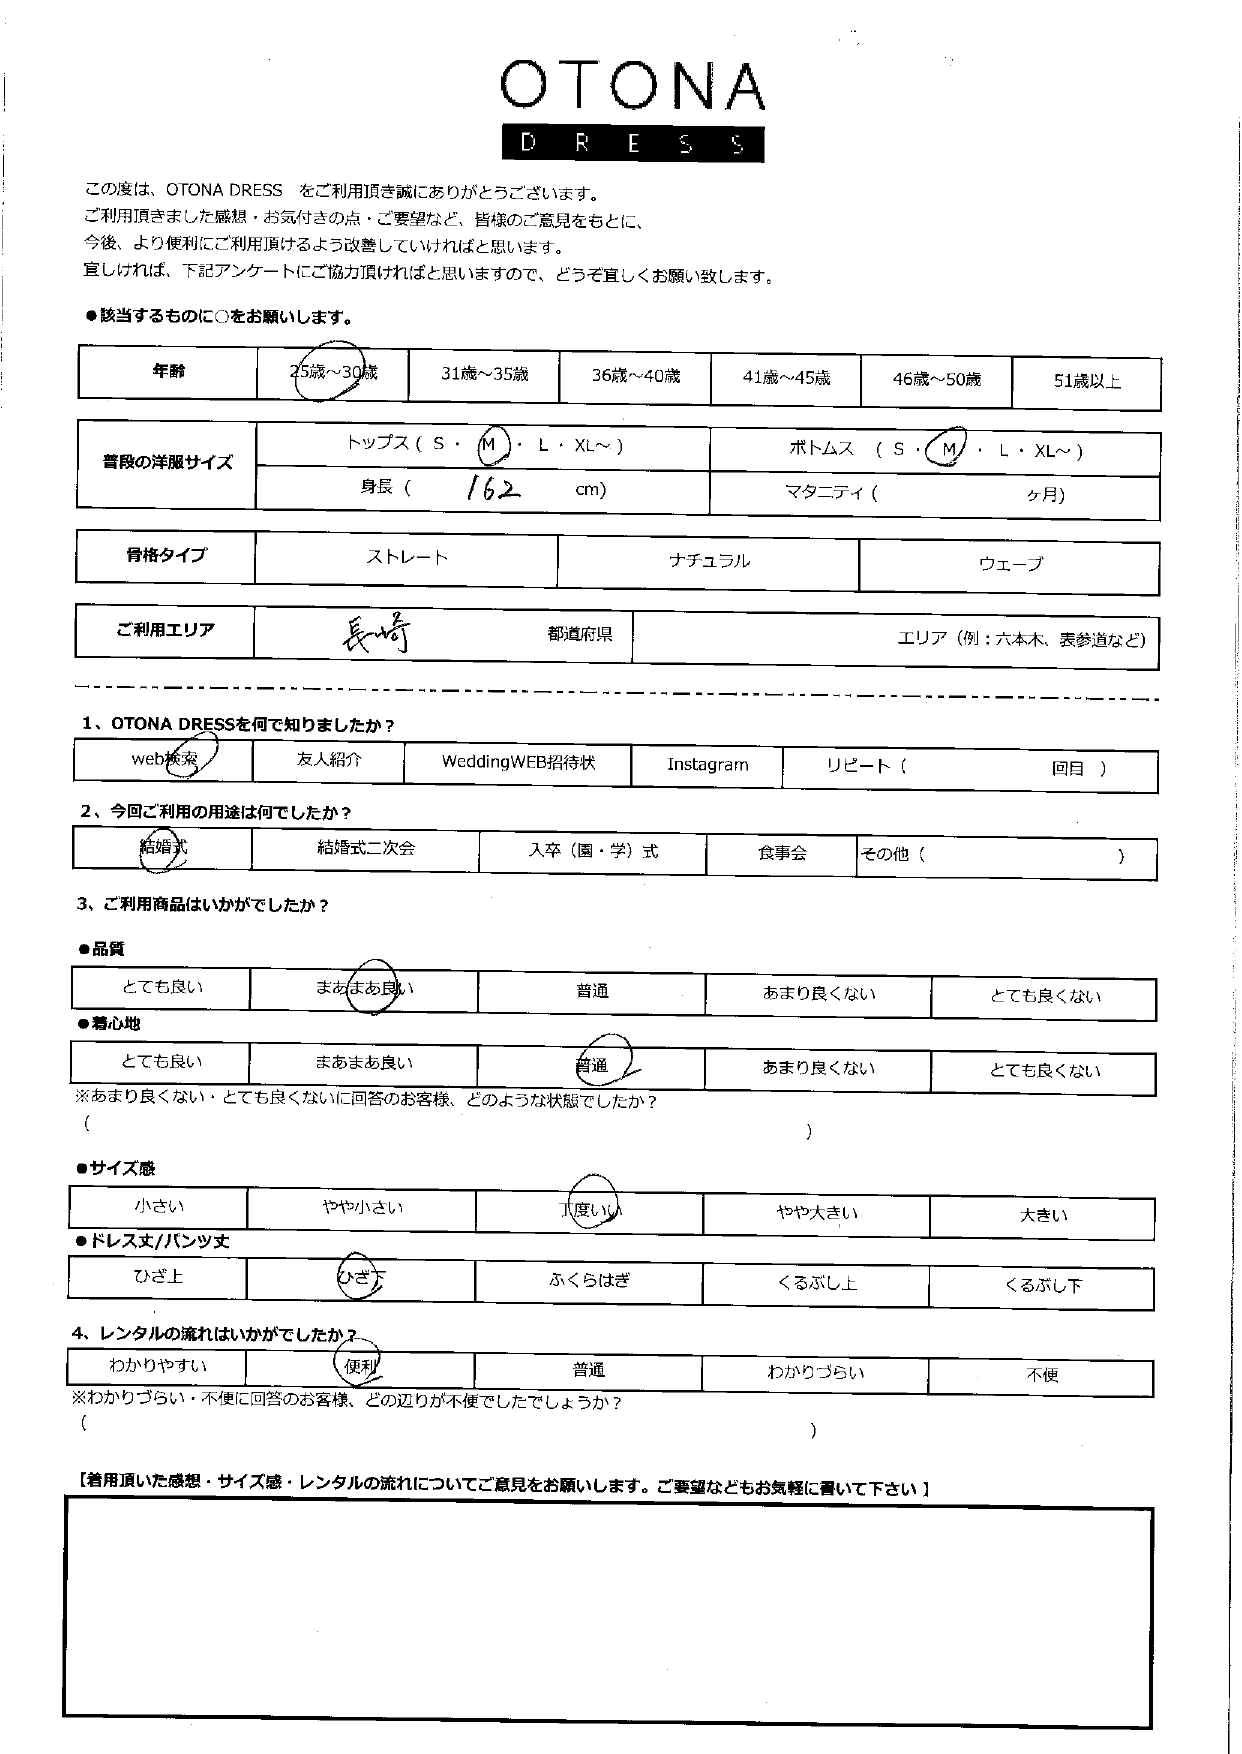 OTONA
DRESS
この度は、OTONA DRESS をご利用頂き誠にありがとうございます。
ご利用頂きました感想・お気付きの点・ご要望など、皆様のご意見をもとに、
今後、より便利にご利用頂けるよう改善していければと思います。
宜しければ、下記アンケートにご協力頂ければと思いますので、どうぞ宜しくお願い致します。
●該当するものに○をお願いします。
年齢 25歳～30歳 31歳～35歳 36歳～40歳 41歳～45歳 46歳～50歳 51歳以上
普段の洋服サイズ トップス ( S ・ M ・ L ・ XL～ ) ボトムス ( S ・ M ・ L ・ XL～ )
身長 ( 162 cm) マタニティ ( ヶ月)
骨格タイプ ストレート ナチュラル ウェーブ
ご利用エリア 長崎 都道府県 エリア（例：六本木、表参道など）
1、OTONA DRESSを何で知りましたか？
web検索 友人紹介 WeddingWEB招待状 Instagram リピート ( 回目 )
2、今回ご利用の用途は何でしたか？
結婚式 結婚式二次会 入卒（園・学）式 食事会 その他 ( )
3、ご利用商品はいかがでしたか？
●品質
とても良い まあまあ良い 普通 あまり良くない とても良くない
●着心地
とても良い まあまあ良い 普通 あまり良くない とても良くない
※あまり良くない・とても良くないに回答のお客様、どのような状態でしたか？
( )
●サイズ感
小さい やや小さい 丁度いい やや大きい 大きい
●ドレス丈/パンツ丈
ひざ上 ひざ下 ふくらはぎ くるぶし上 くるぶし下
4、レンタルの流れはいかがでしたか？
わかりやすい 便利 普通 わかりづらい 不便
※わかりづらい・不便に回答のお客様、どの辺りが不便でしたでしょうか？
( )
【着用頂いた感想・サイズ感・レンタルの流れについてご意見をお願いします。ご要望などもお気軽に書いて下さい】